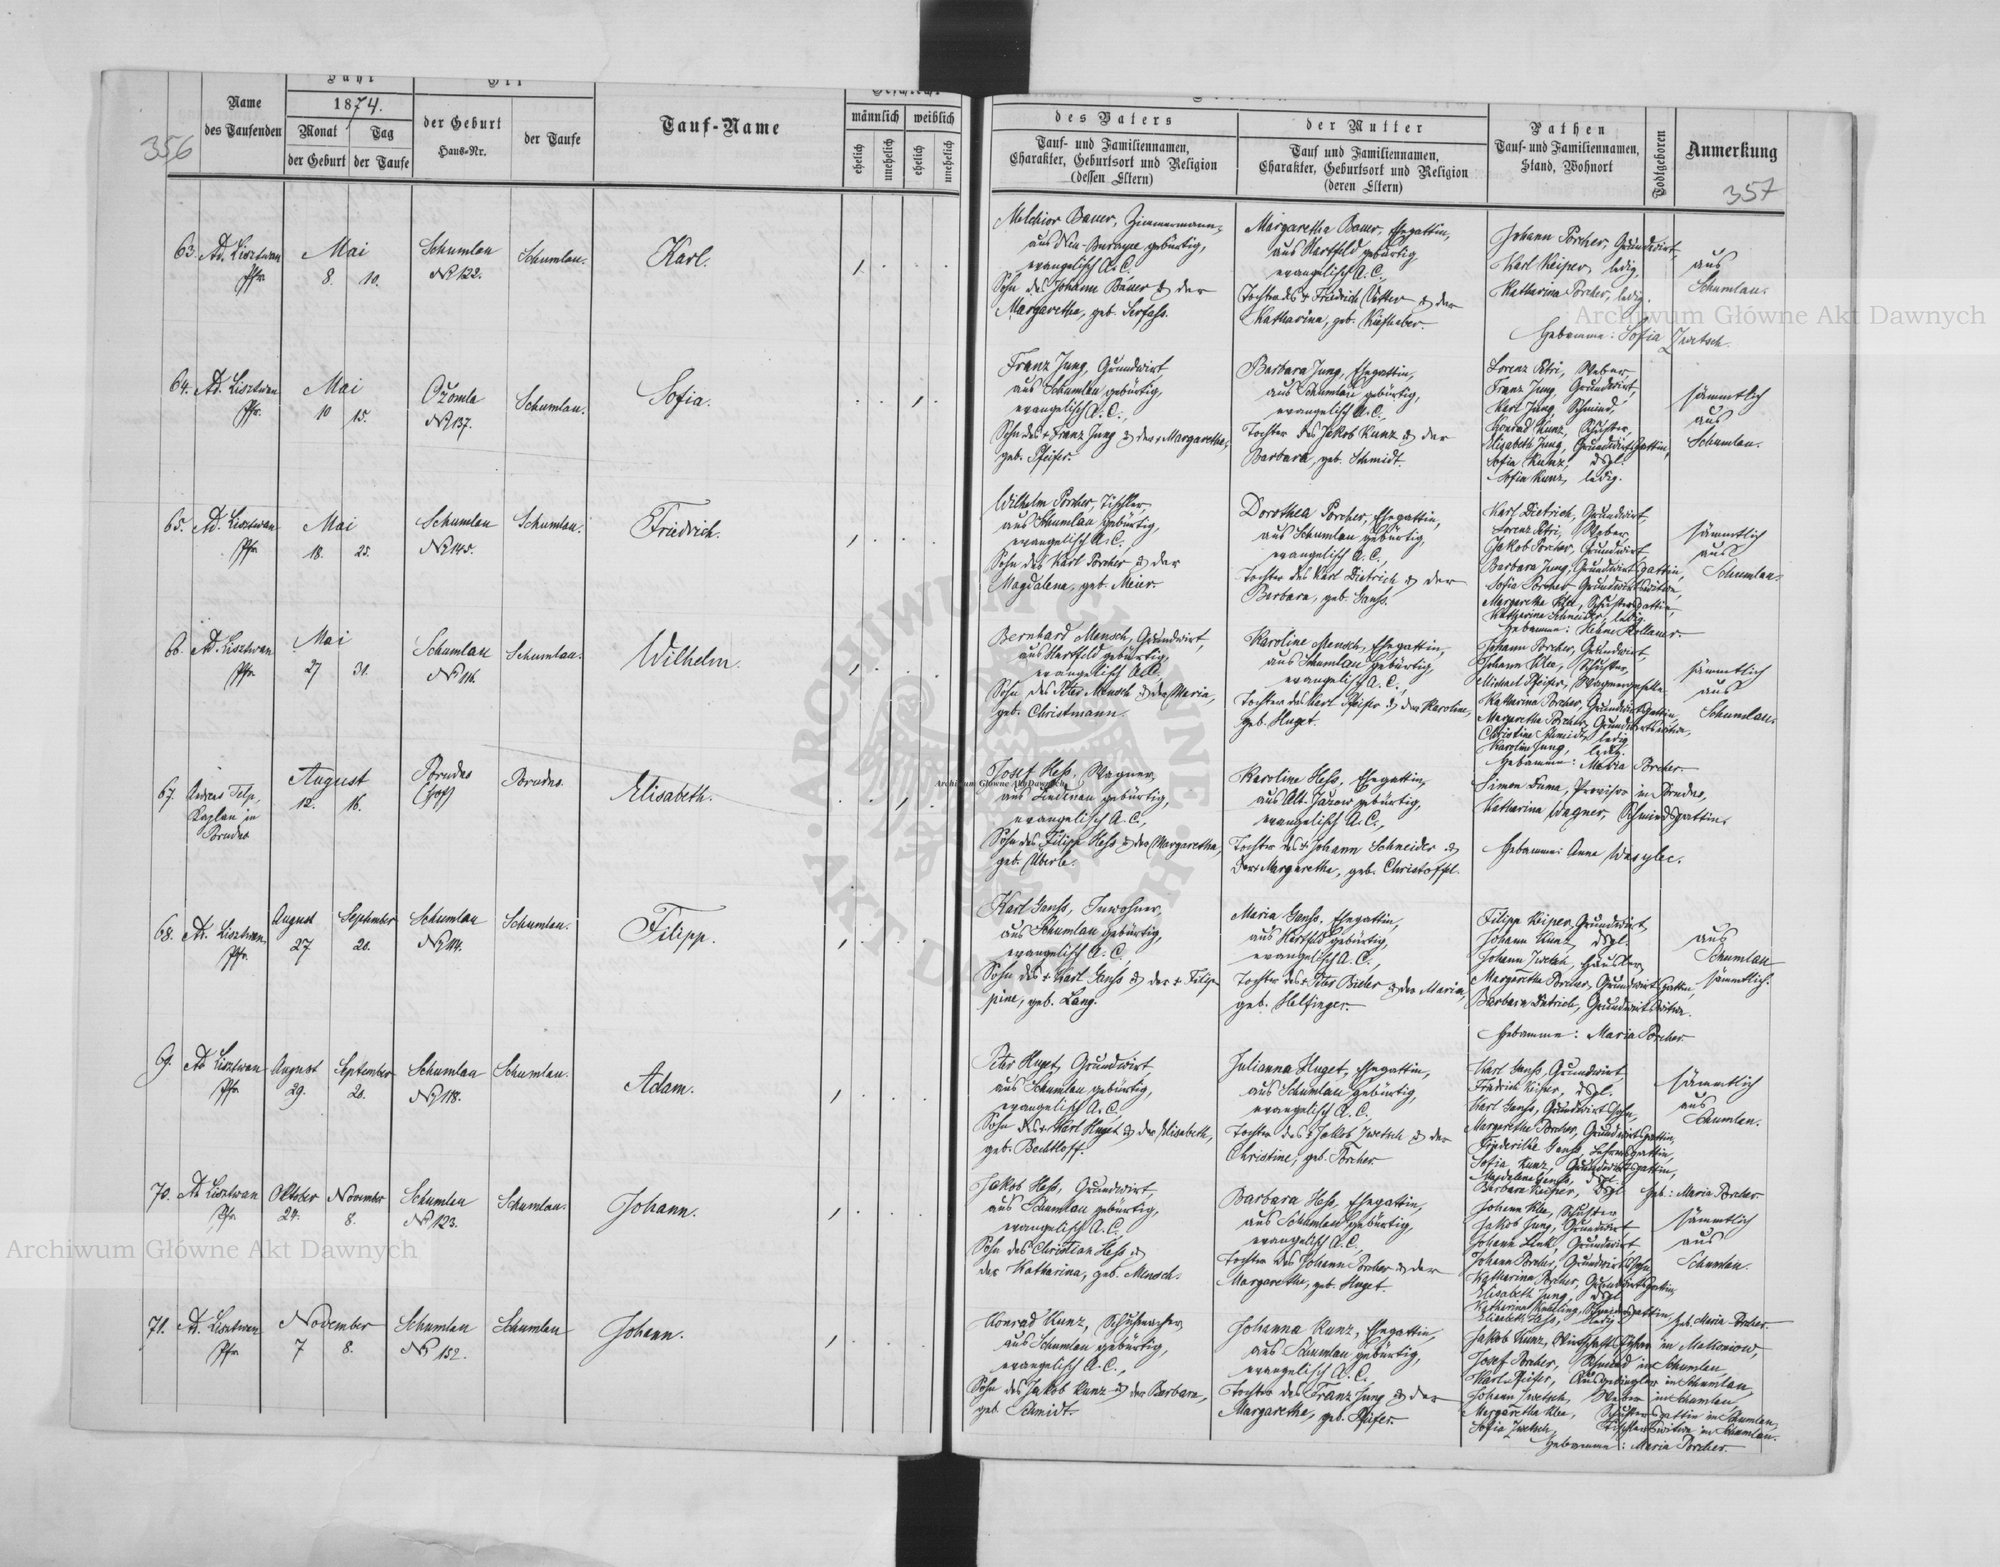 356
Name
des Taufenden
Jahr
1874.
Monat
Tag
der Geburt
der Taufe
Ort
der Geburt
Haus-Nr.
der Taufe
Tauf-Name
Geschlecht
männlich
weiblich
ehelich
unehelich
ehelich
unehelich
des Vaters
Tauf- und Familiennamen,
Charakter, Geburtsort und Religion
(dessen Eltern)
der Mutter
Tauf und Familiennamen,
Charakter, Geburtsort und Religion
(deren Eltern)
Pathen
Tauf- und Familiennamen,
Stand, Wohnort
Todtgeboren
Anmerkung
357
63. Ad. Lisztwan
Pfr.
Mai
8. 10.
Schumlau
No 122.
Schumlau.
Karl.
Melchior Bauer, Zimmermann,
gebürtig,
evangelisch A. C.
Sohn des Johann Bauer & der
Margaretha, geb. Serfass.
Margaretha Bauer, Ehegattin,
aus Hartfeld gebürtig
evangelisch A. C.
Tochter des + Friedrich Vetter & der
Katharina, geb. Kiefhaber.
Johann Porcher, Grundwirt,
Karl Keiper, ledig,
Katharina Porcher, ledig.
Hebamme: Sofia Zwetsch.
aus
Schumlau.
64. Ad. Lisztwan
Pfr.
Mai
10 15.
Ozomla
No 137.
Schumlau.
Sofia.
Franz Jung, Grundwirt
aus Schumlau gebürtig,
evangelisch A. C.,
Sohn des + Franz Jung & der + Margaretha,
geb. Pfeifer.
Barbara Jung, Ehegattin,
aus Schumlau gebürtig,
evangelisch A. C.,
Tochter des Jakob Kunz & der
Barbara, geb. Schmidt.
Lorenz Petri, Weber,
Franz Jung, Grundwirt,
Karl Jung, Schmied,
Konrad Kunz, Schuster,
Elisabeth Jung, Grundwirtsgattin,
Sofia Kunz, dsgl.
Sofia Kunz, ledig.
sämmtlich
aus
Schumlau.
65. Ad. Lisztwan
Pfr.
Mai
18. 25.
Schumlau
No 145.
Schumlau.
Friedrich.
Wilhelm Porcher, Tischler
aus Schumlau gebürtig,
evangelisch A. C.,
Sohn des Karl Porcher & der
Magdalena, geb. Meier.
Dorothea Porcher, Ehegattin,
aus Schumlau gebürtig,
evangelisch A. C.,
Tochter des Karl Dietrich & der
Barbara, geb. Ganss.
Karl Dietrich, Grundwirt,
Lorenz Petri, Weber,
Jakob Porcher, Grundwirt,
Barbara Jung, Grundwirtsgattin,
Sofia Porcher, Grundwirtswitwe,
Margaretha Klee, Schustersgattin,
Katharina Schneider, ledig.
Hebamme:
sämmtlich
aus
Schumlau.
66. Ad. Lisztwan
Pfr.
Mai
27 31.
Schumlau
No 116.
Schumlau.
Wilhelm.
Bernhard Mensch, Grundwirt,
aus Hartfeld gebürtig,
evangelisch A. C.,
Sohn des Peter Mensch & der Maria,
geb. Christmann.
Karoline Mensch, Ehegattin,
aus Schumlau gebürtig,
evangelisch A. C.,
Tochter des Karl Pfeifer & der Karoline,
geb. Huget.
Johann Porcher, Grundwirt,
Johann Klee, Schuster,
Michael Pfeifer, Wagnergeselle,
Katharina Porcher, Grundwirtsgattin,
Margaretha Porcher, Grundwirtswitwe,
Christine Schmidt, ledig
Karolina Jung, ledig.
Hebamme: Maria Porcher.
sämmtlich
aus
Schumlau.
67. Andreas
Kaplan in
Brudas
August
12. 16.
(Hof)
Elisabeth.
Josef Hess, Wagner,
aus Lindenau gebürtig,
evangelisch A. C.,
Sohn des Filipp Hess & der Margaretha,
geb. Überle.
Karoline Hess, Ehegattin,
aus Alt Jazow gebürtig,
evangelisch A. C.,
Tochter des + Johann Schneider &
der + Margaretha, geb. Christoffel.
Simon Duma, Provisor in
Katharina Wagner, Schmiedsgattin.
Hebamme: Anna Wasylec.
68. Ad. Lisztwan
Pfr.
August September
27 20.
Schumlau
No 114.
Schumlau.
Filipp.
Karl Ganss, Inwohner,
aus Schumlau gebürtig,
evangelisch A. C.,
Sohn des + Karl Ganss & der + Filip-
pine, geb. Lang.
Maria Ganss, Ehegattin,
aus Hartfeld gebürtig,
evangelisch A. C.,
Tochter des + Peter Bieber & der Maria,
geb. Helfinger.
Filipp Keiper, Grundwirt,
Johann Kunz dsgl.
Johann Zwetsch, Häusler,
Margaretha Porcher, Grundwirtsgattin,
Barbara Dietrich, Grundwirtswitwe.
Hebamme: Maria Porcher
aus
Schumlau
sämmtlich.
69. Ad. Lisztwan
Pfr.
August September
29. 20.
Schumlau
No 118.
Schumlau.
Adam.
Peter Huget, Grundwirt
aus Schumlau gebürtig,
evangelisch A. C.
Sohn des + Karl Huget & der Elisabeth,
geb. Bechtloff.
Julianna Huget, Ehegattin,
aus Schumlau gebürtig,
evangelisch A. C.
Tochter des + Jakob Zwetsch & der
Christine, geb. Porcher.
Karl Ganss, Grundwirt,
Friedrich Keiper, dsgl.
Karl Ganss, Grundwirtssohn,
Margaretha Porcher, Grundwirtsgattin,
Friederike Ganss, Lehrersgattin,
Sofia Kunz, Grundwirtsgattin,
Magdalena Ganss, dsgl.
Barbara Keiper, dsgl. Heb: Maria Porcher
sämmtlich
aus
Schumlau.
70. Ad. Lisztwan
Pfr.
Oktober November
24. 8.
Schumlau
No 123.
Schumlau.
Johann.
Jakob Hess, Grundwirt,
aus Schumlau gebürtig,
evangelisch A. C.
Sohn des Christian Hess &
der Katharina, geb. Mensch.
Barbara Hess, Ehegattin,
aus Schumlau gebürtig,
evangelisch A. C.
Tochter des Johann Porcher & der
Margaretha, geb. Huget.
Johann Klee, Schuster
Jakob Jung, Grundwirt
Johann Link, Grundwirt
Johann Porcher, Grundwirtssohn
Katharina Porcher, Grundwirtsgattin,
Elisabeth Jung, dsgl.
Elisabeth Hess, ledig. Heb. Maria Porcher.
sämmtlich
aus
Schumlau.
71. Ad. Lisztwan
Pfr.
November
7 8.
Schumlau
No 152.
Schumlau
Johann.
Konrad Kunz, Schuhmacher,
aus Schumlau gebürtig,
evangelisch A. C.,
Sohn des Jakob Kunz & der Barbara,
geb. Schmidt.
Johanna Kunz, Ehegattin,
aus Schumlau gebürtig,
evangelisch A. C.
Tochter des Franz Jung & der
Margaretha, geb. Pfeifer.
Jakob Kunz,
Josef Porcher, Schmied in Schumlau
Karl Pfeifer, Ausgedingler in Schumlau,
Johann Zwetsch, Weber in Schumlau
Margaretha Klee, Schustersgattin in Schumlau,
Sofia Zwetsch, Tischlerswitwe in Schumlau.
Hebamme: Maria Porcher.
Archiwum Główne Akt Dawnych
Archiwum Główne Akt Dawnych
Archiwum Główne Akt Dawnych